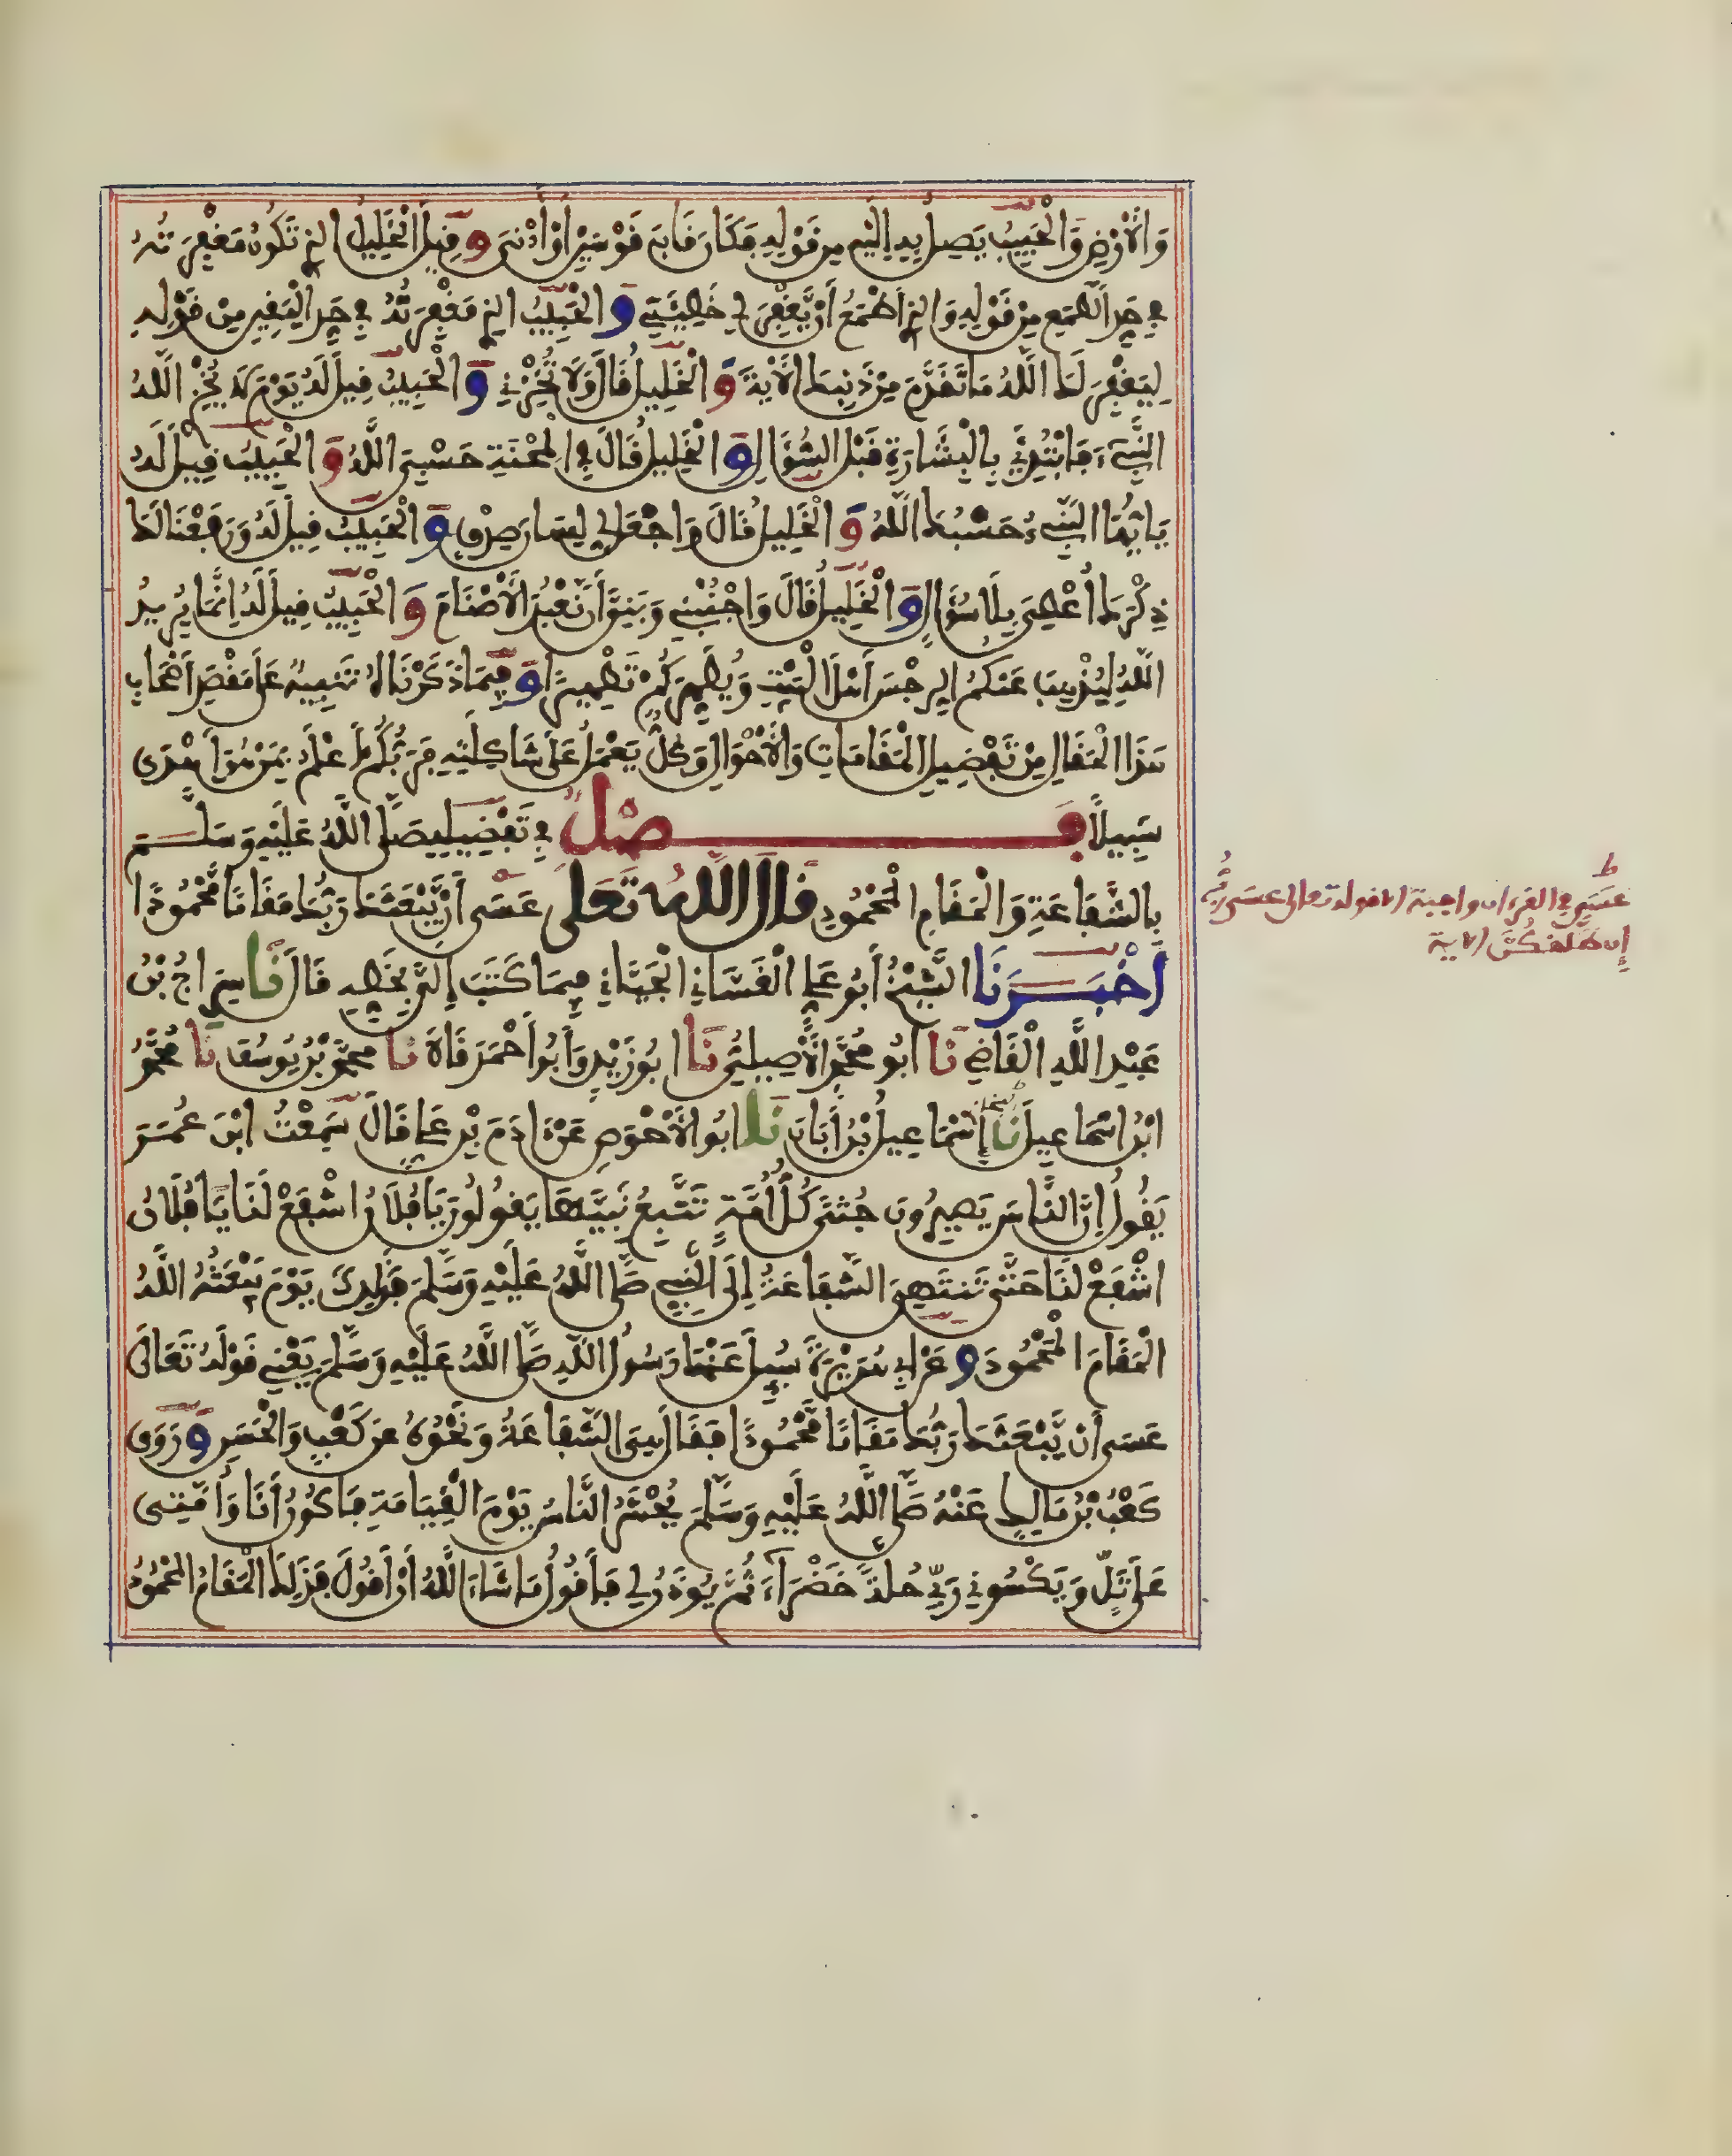 وَالْأَرْضِ وَالْحَبِيبُ يَصِلُ بِهِ إِلَيْهِ مِن قَوْلِهِ فَكَانَ قَابَ قَوْسَيْنِ أَوْ أَدْنَى وَقِيلَ الْخَلِيلُ الذِي تَكُونُ مَغْفِرَتُهُ
فِي حَدِّ الطَّمَعِ مِنْ قَوْلِهِ وَالذِي أَطْمَعُ أَنْ يَّغْفِرَ لِي خَطِيئَتِي وَالْحَبِيبُ الذِي مَغْفِرَتُهُ فِي حَدِّ الْيَقِينِ مِنْ قَوْلِهِ
لِيَغْفِرَ لَكَ اللَّهُ مَا تَقَدَّمَ مِنْ ذَنْبِكَ الْآيَةَ وَالْخَلِيلُ قَالَ وَلَا تُخْزِنِي وَالْحَبِيبُ قِيلَ لَهُ يَوْمَ لَا يُخْزِي اللَّهُ
النَّبِيءَ فَابْتُدِئَ بِالْبِشَارَةِ قَبْلَ السُّؤَالِ وَالْخَلِيلُ قَالَ فِي الْمِحْنَةِ حَسْبِيَ اللَّهُ وَالْحَبِيبُ قِيلَ لَهُ
يَا أَيُّهَا النَّبِيءُ حَسْبُكَ اللَّهُ وَالْخَلِيلُ قَالَ وَاجْعَل لِّي لِسَانَ صِدْقٍ وَالْحَبِيبُ قِيلَ لَهُ وَرَفَعْنَا لَكَ
ذِكْرَكَ أُعْطِيَ بِلَا سُؤَالٍ وَالْخَلِيلُ قَالَ وَاجْنُبْنِي وَبَنِيَّ أَن نَّعْبُدَ الْأَصْنَامَ وَالْحَبِيبُ قِيلَ لَهُ إِنَّمَا يُرِيدُ
اللَّهُ لِيُذْهِبَ عَنكُمُ الرِّجْسَ أَهْلَ الْبَيْتِ وَيُطَهِّرَكُمْ تَطْهِيرًا وَفِيمَا ذَكَرْنَاهُ تَنْبِيهٌ عَلَى مَقْصَدِ أَصْحَابِ
هَذَا الْمَقَالِ مِنْ تَفْضِيلِ الْمَقَامَاتِ وَالْأَحْوَالِ وَكُلٌّ يَعْمَلُ عَلَى شَاكِلَتِهِ فَرَبُّكُمْ أَعْلَمُ بِمَنْ هُوَ أَهْدَى
سَبِيلًا فَصْلٌ فِي تَفْضِيلِهِ صَلَّى اللَّهُ عَلَيْهِ وَسَلَّمَ
بِالشَّفَاعَةِ وَالْمَقَامِ الْمَحْمُودِ قَالَ اللَّهُ تَعَلَى عَسَى أَنْ يَّبْعَثَكَ رَبُّكَ مَقَامًا مَّحْمُودًا
أَخْبَرَنَا الشَّيْخُ أَبُو عَلِيٍّ الْغَسَّانِي الْجَيَّانِي فِيمَا كَتَبَ إِلَيَّ بِخَطِّهِ قَالَ نَا سِرَاجُ بْنُ
عَبْدِ اللَّهِ الْقَاضِي نَا أَبُو مُحَمَّدٍ الْأَصِيلِيُّ نَا أَبُو زَيْدٍ وَأَبُو أَحْمَدَ قَالَا نَا مُحَمَّدُ بْنُ يُوسُفَ نَا مُحَمَّدُ
ابْنُ إِسْمَاعِيلَ نَا إِسْمَاعِيلُ بْنُ أَبَانَ نَا أَبُو الْأَحْوَصِ عَنْ ءَادَمَ بْنِ عَلِيٍّ قَالَ سَمِعْتُ ابْنَ عُمَرَ
يَقُولُ إِنَّ النَّاسَ يَصِيرُونَ جُثًى كُلُّ أُمَّةٍ تَتَّبِعُ نَبِيَّهَا يَقُولُونَ يَا فُلَانُ اشْفَعْ لَنَا يَا فُلَانُ
اشْفَعْ لَنَا حَتَّى تَنتَهِيَ الشَّفَاعَةُ إِلَى النَّبِيِّ صَلَّى اللَّهُ عَلَيْهِ وَسَلَّمَ فَذَلِكَ يَوْمَ يَبْعَثُهُ اللَّهُ
الْمَقَامَ الْمَحْمُودَ وَعَنْ أَبِي هُرَيْرَةَ سُئِلَ عَنْهَا رَسُولُ اللَّهِ صَلَّى اللَّهُ عَلَيْهِ وَسَلَّمَ يَعْنِي قَوْلَهُ تَعَالَى
عَسَى أَنْ يَّبْعَثَكَ رَبُّكَ مَقَامًا مَّحْمُودًا فَقَالَ هِيَ الشَّفَاعَةُ وَنَحْوُهُ عَن كَعْبٍ وَالْحَسَنِ وَرَوَى
كَعْبُ بْنُ مَالِكٍ عَنْهُ صَلَّى اللَّهُ عَلَيْهِ وَسَلَّمَ يُحْشَرُ النَّاسُ يَوْمَ الْقِيَامَةِ فَأَكُونُ أَنَا وَأُمَّتِي
عَلَى تَلٍّ وَيَكْسُونِي رَبِّي حُلَّةً خَضْرَاءَ ثُمَّ يُوذَنُ لِي فَأَقُولُ مَا شَاءَ اللَّهُ أَنْ أَقُولَ فَذَلِكَ الْمَقَامُ الْمَحْمُودُ
ط
عسى في القرءان واجبة الا قوله تعالى عسى ربه
إن طلقكن الاية